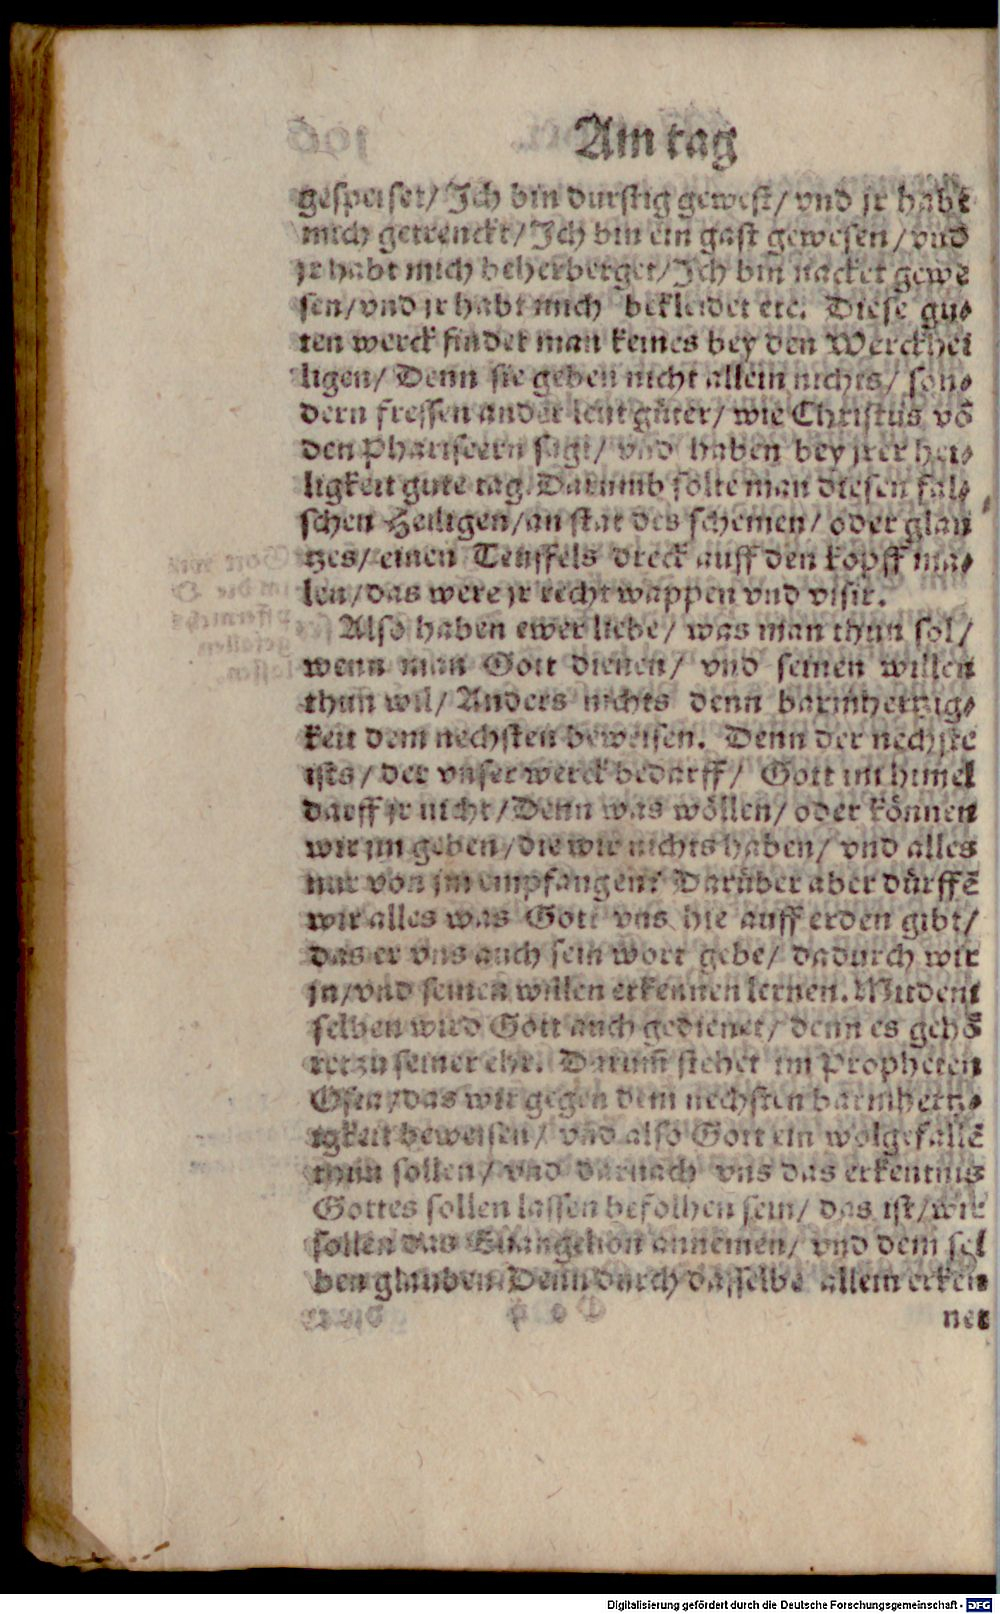 Am tag
gespeiset/ Ich bin durstig gewest/ vnd jr habt
mich getrenckt/ Ich bin ein gast gewesen/ vnd
jr habt mich beherberget/ Ich bin nacket gewe
sen/ vnd jr habt mich bekleidet etc. Diese gu⸗
ten werck findet man keines bey den Werckhei
ligen/ Denn sie geben nicht allein nichts/ son⸗
dern fressen ander leut güter/ wie Christus võ
den Phariseern sagt/ vnd haben bey jrer hei⸗
ligkeit gute tag. Darumb solte man diesen fal⸗
schen Heiligen/ an stat des scheinen/ oder glan
tzes/ einen Teuffels dreck auff den kopff ma⸗
len/ das were jr recht wappen vnd visir.
Also haben ewer liebe/ was man thun sol/
wenn man Gott dienen/ vnd seinen willen
thun wil/ Anders nichts denn barmhertzig⸗
keit dem nechsten beweisen. Denn der nechste
ists/ der vnser werck bedarff/ Gott im himel
darff jr nicht/ Denn was wöllen/ oder können
wir jm geben/ die wir nichts haben/ vnd alles
nur von jm empfangen? Darüber aber dürffẽ
wir alles was Gott vns hie auff erden gibt/
das er vns auch sein wort gebe/ dadurch wir
jn/ vnd seinen willen erkennen lernen. Mit dem
selben wird Gott auch gedienet/ denn es gehö
ret zu seiner ehr. Darum̃ stehet im Propheten
Osea/ das wir gegen dem nechsten barmhertz⸗
igkeit beweisen/ vnd also Gott ein wolgefallẽ
thun sollen/ vnd darnach vns das erkentnis
Gottes sollen lassen befolhen sein/ das ist/ wir
sollen das Euangelion annemen/ vnd dem sel
ben glauben. Denn durch dasselbe allein erken
net
Digitalisierung gefördert durch die Deutsche Forschungsgemeinschaft - DFG